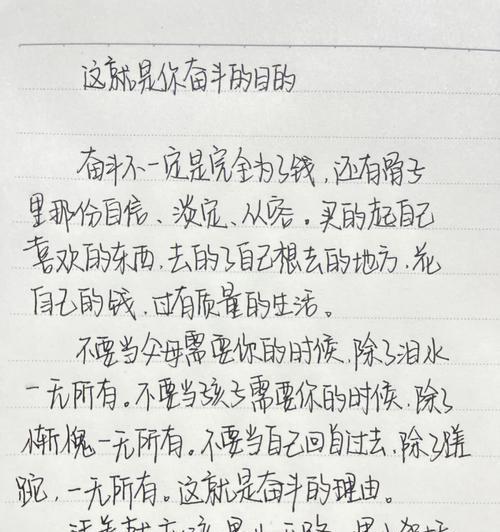 这就是你奋斗的目的
奋斗不一定是完全为了钱,还有骨子
里那份自信、淡定、从容。买的起自己
喜欢的东西,去的了自己想去的地方,花
自己的钱,过有质量的生活。
不要当父母需要你的时候,除了泪水
一无所有。不要当孩子需要你的时候,除了
惭愧一无所有。不要当自己回首过去,除了蹉
跎,一无所有。这就是奋斗的理由。